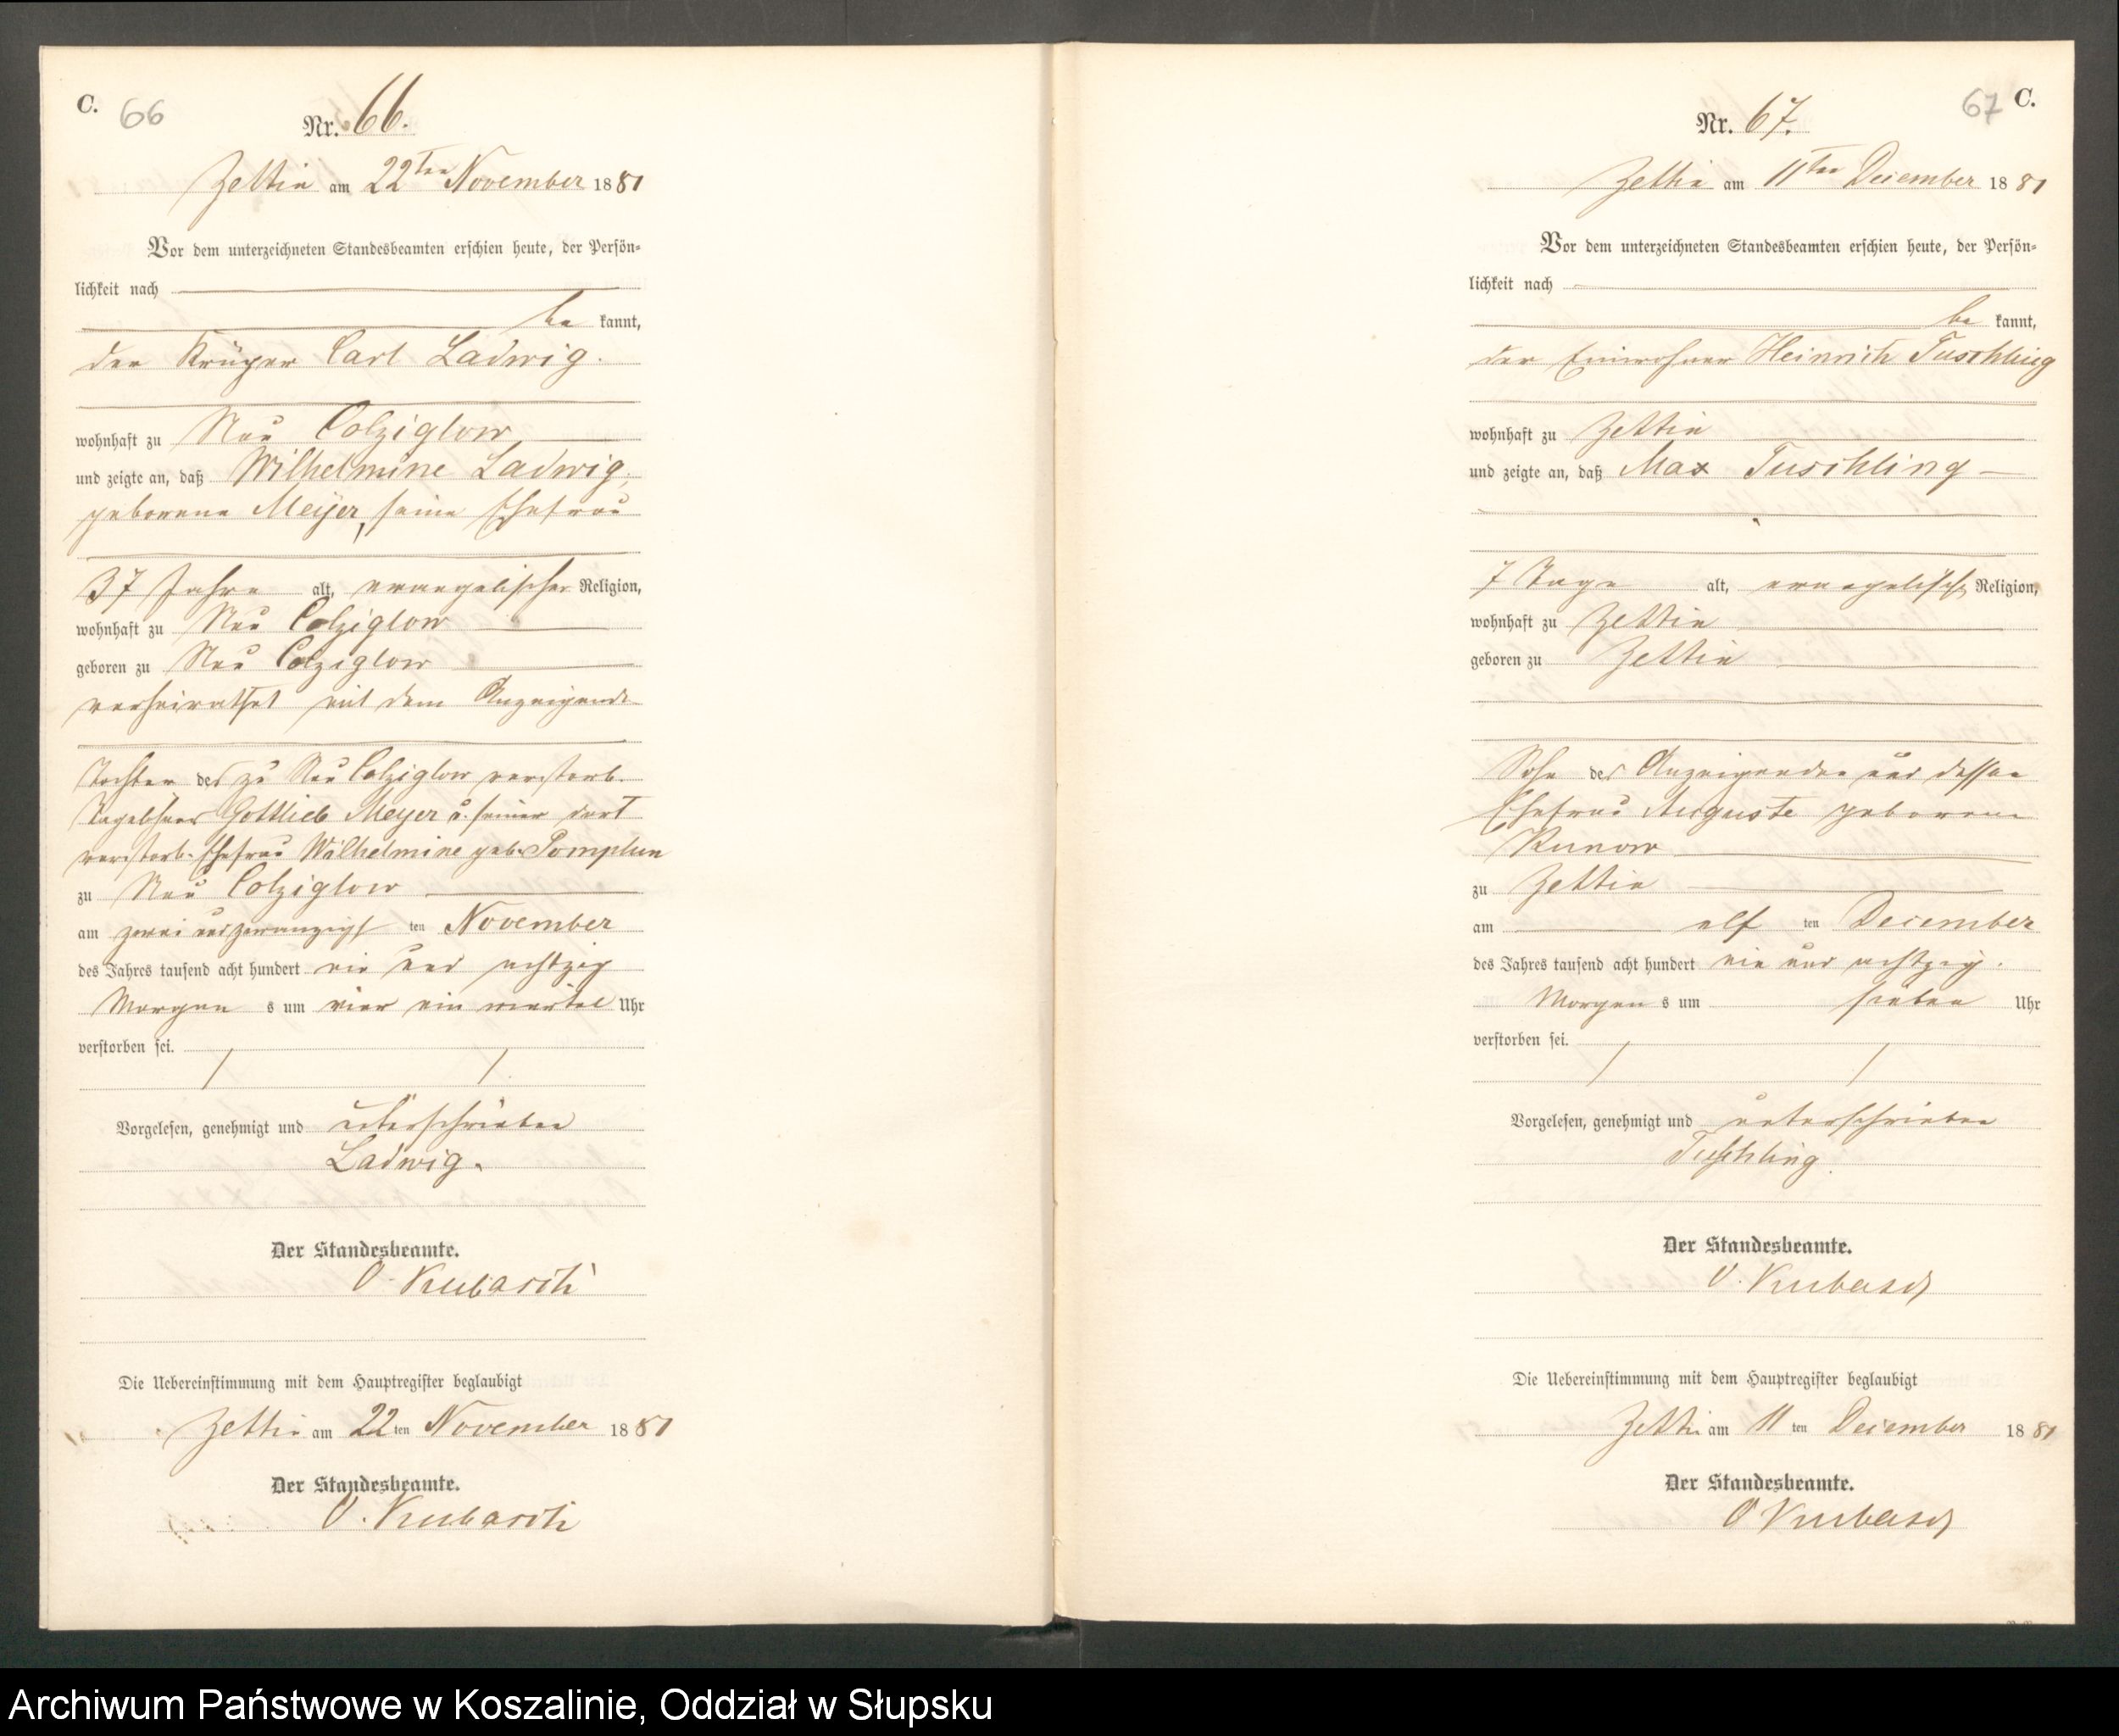 C. 66
Nr. 66.
Zettin am 22ten November 1881
Vor dem unterzeichneten Standesbeamten erschien heute, der Persön-
lichkeit nach
be kannt,
der Krüger Carl Ladwig.
wohnhaft zu Neu Colziglow
und zeigte an, daß Wilhelmine Ladwig,
geborene Meyer, seine Ehefrau
37 Jahre alt, evangelischer Religion,
wohnhaft zu Neu Colziglow
geboren zu Neu Colziglow
verheirathet mit dem Anzeigende
Tochter des zu Neu Colziglow verstorb.
Tagelöhners Gottlieb Meyer u. seiner dort
verstorb. Ehefrau Wilhelmine geb. Pomplun
zu Neu Colziglow
am zwei und zwanzigsten November
des Jahres tausend acht hundert ein und achtzig
Morgens um vier ein viertel Uhr
verstorben sei.
Vorgelesen, genehmigt und unterschrieben
Ladwig.
Der Standesbeamte.
O. Kubasch
Die Uebereinstimmung mit dem Hauptregister beglaubigt
Zettin am 22ten November 1881
Der Standesbeamte.
O. Kubasch
67 C.
Nr. 67.
Zettin am 11ten December 1881
Vor dem unterzeichneten Standesbeamten erschien heute, der Persön-
lichkeit nach
be kannt,
der Einwohner Heinrich Tuschling
wohnhaft zu Zettin
und zeigte an, daß Max Tuschling
7 Tage alt, evangelisch Religion,
wohnhaft zu Zettin
geboren zu Zettin
Sohn des Anzeigenden und dessen
Ehefrau Auguste geborene
Kunow
zu Zettin
am elf ten December
des Jahres tausend acht hundert ein und achtzig.
Morgens um sieben Uhr
verstorben sei.
Vorgelesen, genehmigt und unterschrieben
Tuschling.
Der Standesbeamte.
O. Kubasch
Die Uebereinstimmung mit dem Hauptregister beglaubigt
Zettin am 11 ten December 1881
Der Standesbeamte.
O Kubasch
Archiwum Państwowe w Koszalinie, Oddział w Słupsku